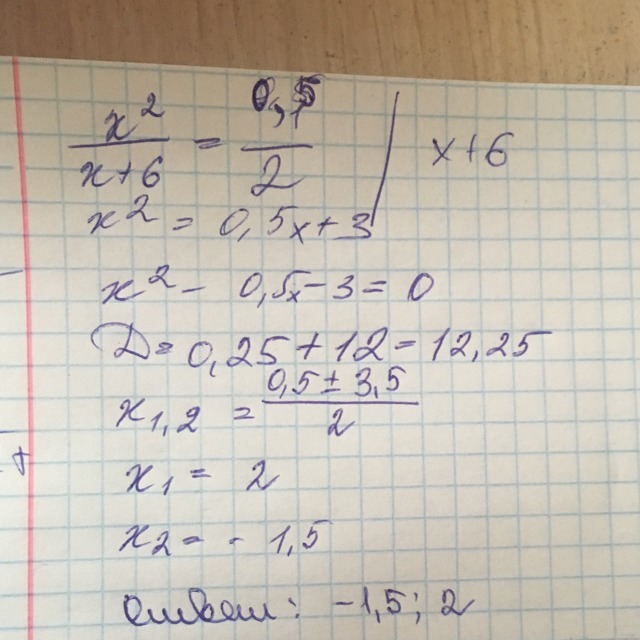 x²/(x+6) = 0,5/2 | x+6
x² = 0,5x+3
x² - 0,5x - 3 = 0
D = 0,25 + 12 = 12,25
x1,2 = (0,5 ± 3,5)/2
x1 = 2
x2 = - 1,5
Ответ: -1,5; 2